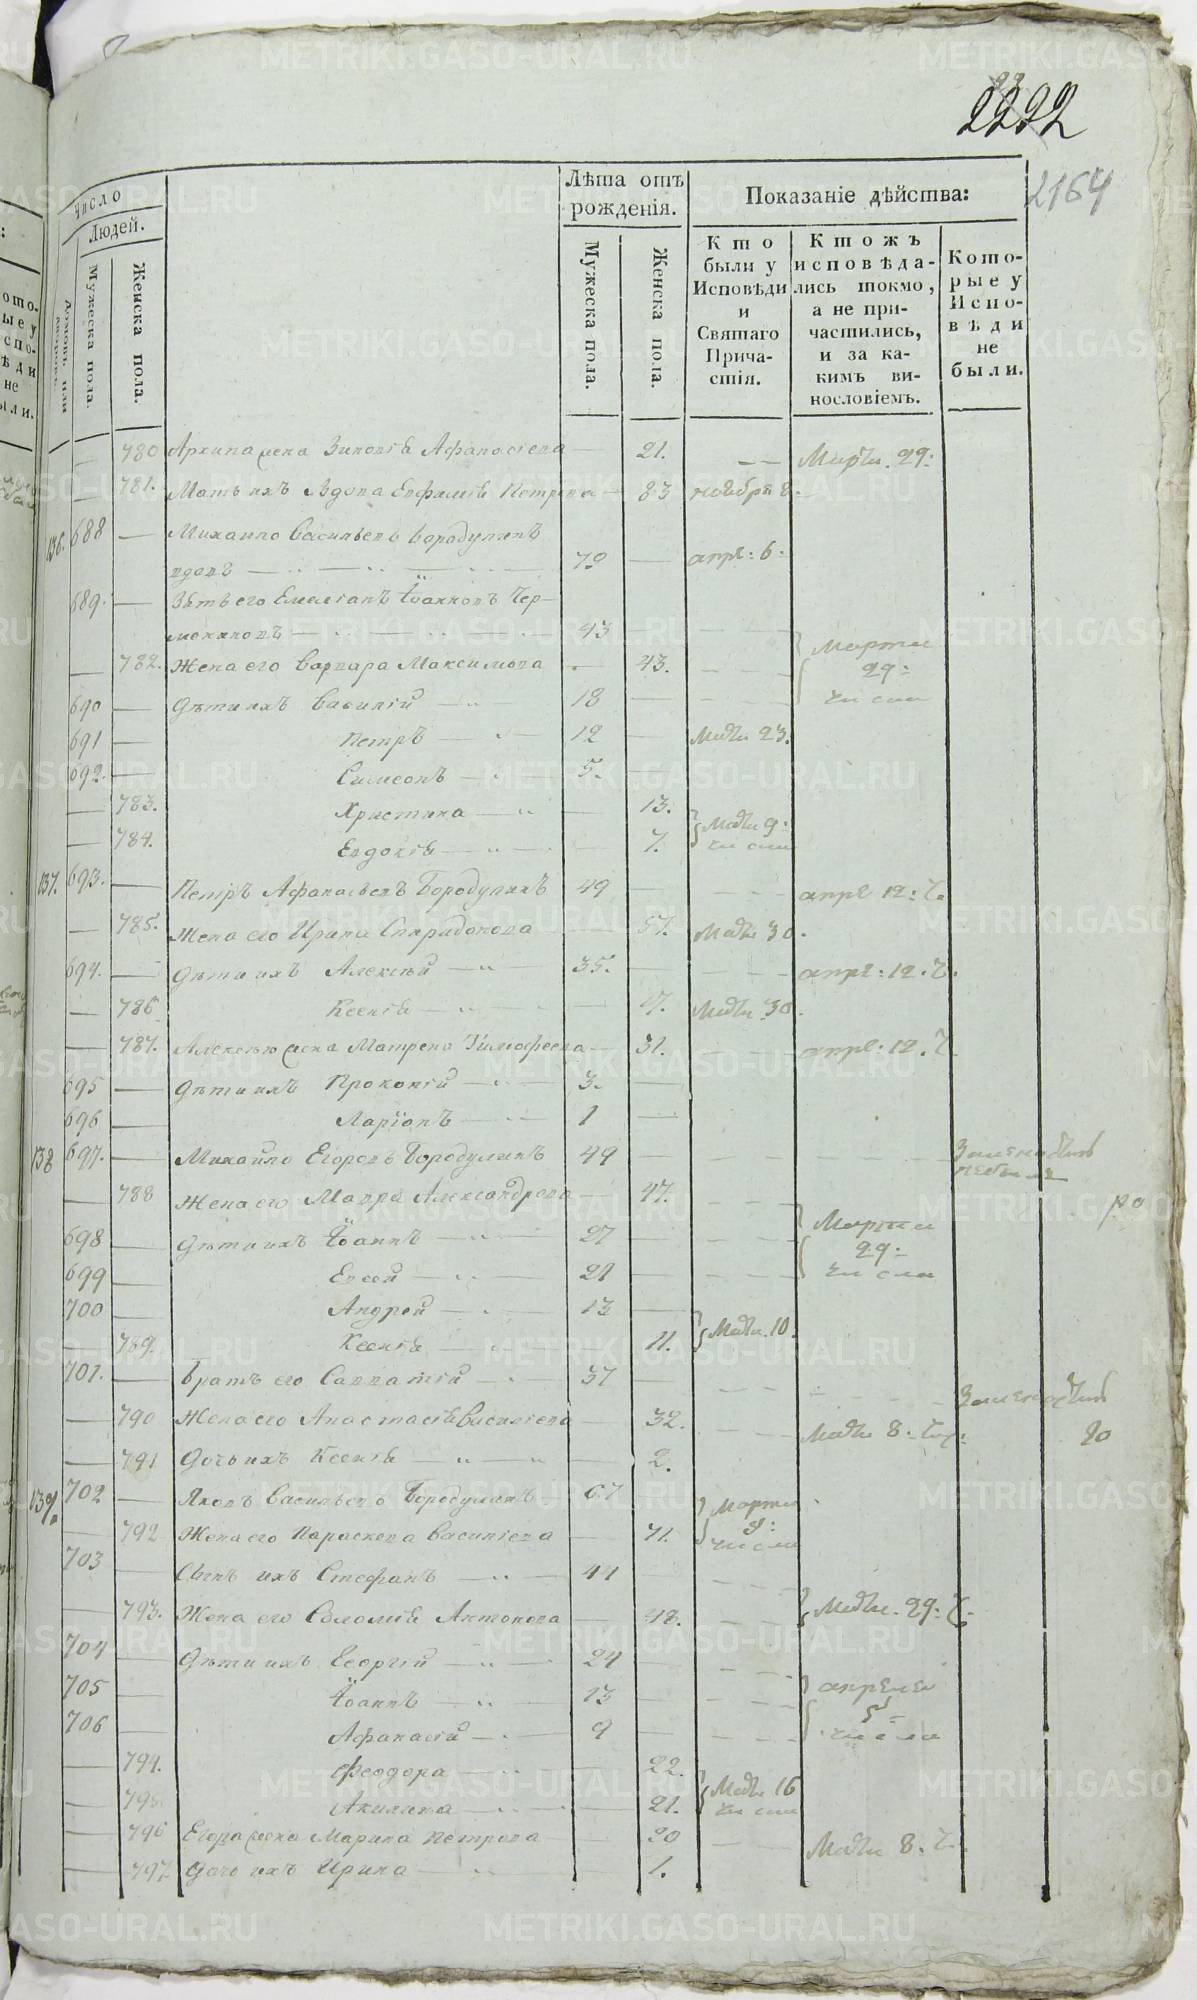 2222
2164
Число
Людей.
Домовъ или
Мужеска пола.
Женска пола.
Лѣта отъ рожденія.
Мужеска пола.
Женска пола.
Показаніе дѣйства:
Кто были у Исповѣди и Святаго Причастія.
Ктожъ исповѣдались токмо, а не причастились, и за какимъ винословіемъ.
Которые у Исповѣди не были.
— 780 Архипа жена Зиновія Афанасіева — 21. Марта. 29:
— 781. Мать ихъ вдова Евфимія Петрова — 83 ноября 8.
136. 688 — Михайло Васильевъ Бородулинъ
вдовъ 70 — апре: 6:
689. — Зять его Емеліанъ Іоанновъ Чер-
мениновъ 43 —
— 782. Жена его Варвара Максимова — 43. Марта 29: числа
690 — Дѣти ихъ Василій 18 —
691 — Петръ 12 — Марта 23.
692. — Симеонъ 5. —
— 783. Христина — 13. Марта 9: числа
— 784. Евдокія — 7.
137. 693. — Петръ Афанасьевъ Бородулинъ 49 — апре 12: ч.
— 785. Жена его Ирина Спиридонова — 57. Марта 30.
694. — Дѣти ихъ Алексѣй 35. — апре: 12. ч.
— 786 Ксенія — 17. Марта 30.
— 787. Алексѣю жена Матрена Тимофеева — 31. апре: 12. ч.
695 — Дѣти ихъ Прокопій 3. —
696 — Ларіонъ 1 —
138 697. — Михайло Егоровъ Бородулинъ 49 —
— 788 Жена его Мавра Александрова — 47. ро
698 — Дѣти ихъ Іоаннъ 27 — Марта 29: числа
699 — Евсей 21 —
700 — Андрей 13 — Марта. 10.
— 789. Ксенія — 11.
701. — Братъ его Савватій 37 —
— 790 Жена его Анастасія Васильева — 32. Марта 8. ч.
— 791 Дочь ихъ Ксенія — 2.
139. 702 — Яковъ Васильевъ Бородулинъ 67 Марта 9: числа
— 792 Жена его Параскева Василіева — 71.
703 — Сынъ ихъ Стефанъ 44 —
— 793. Жена его Соломія Антонова — 48. Марта. 29: ч.
704 — Дѣти ихъ Георгій 24 —
705 — Іоаннъ 13 — апреля 5 числа
706 — Афанасій 9 —
— 794. Феодора — 22. Марта 16 числа
— 795 Акилина — 21.
— 796 Егора жена Марина Петрова — 20 Марта 8. ч.
— 797. Дочь ихъ Ирина — 1.
METRIKI.GASO-URAL.RU